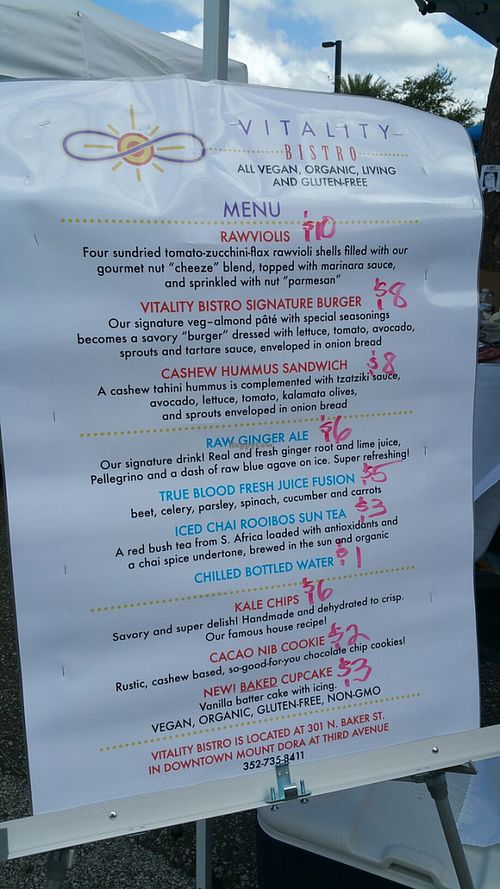 VITALITY
BISTRO
ALL VEGAN, ORGANIC, LIVING
AND GLUTEN-FREE
MENU
RAWVIOLIS $10
Four sundried tomato-zucchini-flax rawvioli shells filled with our
gourmet nut "cheeze" blend, topped with marinara sauce,
and sprinkled with nut "parmesan"
VITALITY BISTRO SIGNATURE BURGER $8
Our signature veg-almond pâté with special seasonings
becomes a savory "burger" dressed with lettuce, tomato, avocado,
sprouts and tartare sauce, enveloped in onion bread
CASHEW HUMMUS SANDWICH $8
A cashew tahini hummus is complemented with tzatziki sauce,
avocado, lettuce, tomato, kalamata olives,
and sprouts enveloped in onion bread
RAW GINGER ALE $6
Our signature drink! Real and fresh ginger root and lime juice,
Pellegrino and a dash of raw blue agave on ice. Super refreshing!
TRUE BLOOD FRESH JUICE FUSION $5
beet, celery, parsley, spinach, cucumber and carrots
ICED CHAI ROOIBOS SUN TEA $3
A red bush tea from S. Africa loaded with antioxidants and
a chai spice undertone, brewed in the sun and organic
CHILLED BOTTLED WATER $1
KALE CHIPS $6
Savory and super delish! Handmade and dehydrated to crisp.
Our famous house recipe!
CACAO NIB COOKIE $2
Rustic, cashew based, so-good-for-you chocolate chip cookies!
NEW! BAKED CUPCAKE $3
Vanilla batter cake with icing.
VEGAN, ORGANIC, GLUTEN-FREE, NON-GMO
VITALITY BISTRO IS LOCATED AT 301 N. BAKER ST.
IN DOWNTOWN MOUNT DORA AT THIRD AVENUE
352-735-8411